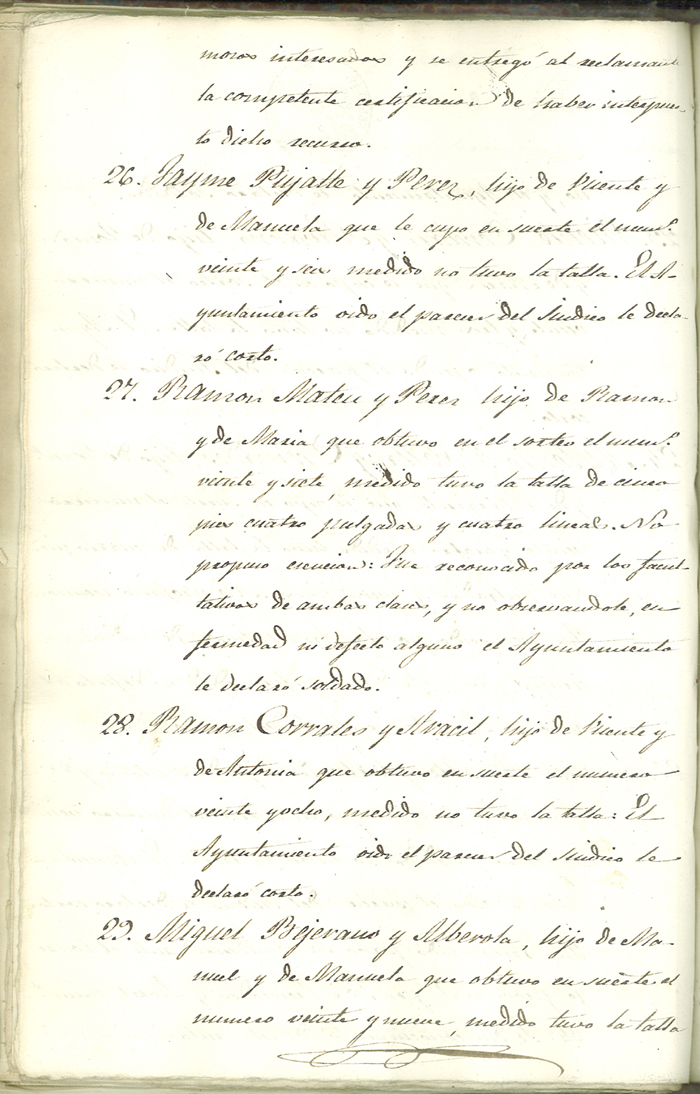 moros interesados y se entregó al reclamante
la competente certificacion de haber interpues-
to dicho recurso.
26. Jayme Pujalte y Perez, hijo de Vicente y
de Manuela que le cupo en suerte el numº
veinte y seis medido no tuvo la talla. El A-
yuntamiento oido el parecer del Sindico le decla-
ró corto.
27. Ramon Mateu y Perez hijo de Ramon
y de Maria que obtuvo en el sorteo el numº
veinte y siete, medido tuvo la talla de cinco
pies cuatro pulgadas y cuatro lineas. No
propuso esencion: Fue reconocido por los facul-
tativos de ambas clases, y no observandole, en
fermedad ni defecto alguno el Ayuntamiento
le declaró soldado.
28. Ramon Corrales y Aracil, hijo de Vicente y
de Antonia que obtuvo en suerte el numero
veinte y ocho, medido no tuvo la talla: El
Ayuntamiento oido el parecer del Sindico le
declaró corto.
29. Miguel Bejerano y Alberola, hijo de Ma-
nuel y de Manuela que obtuvo en suerte el
numero veinte y nueve, medido tuvo la talla